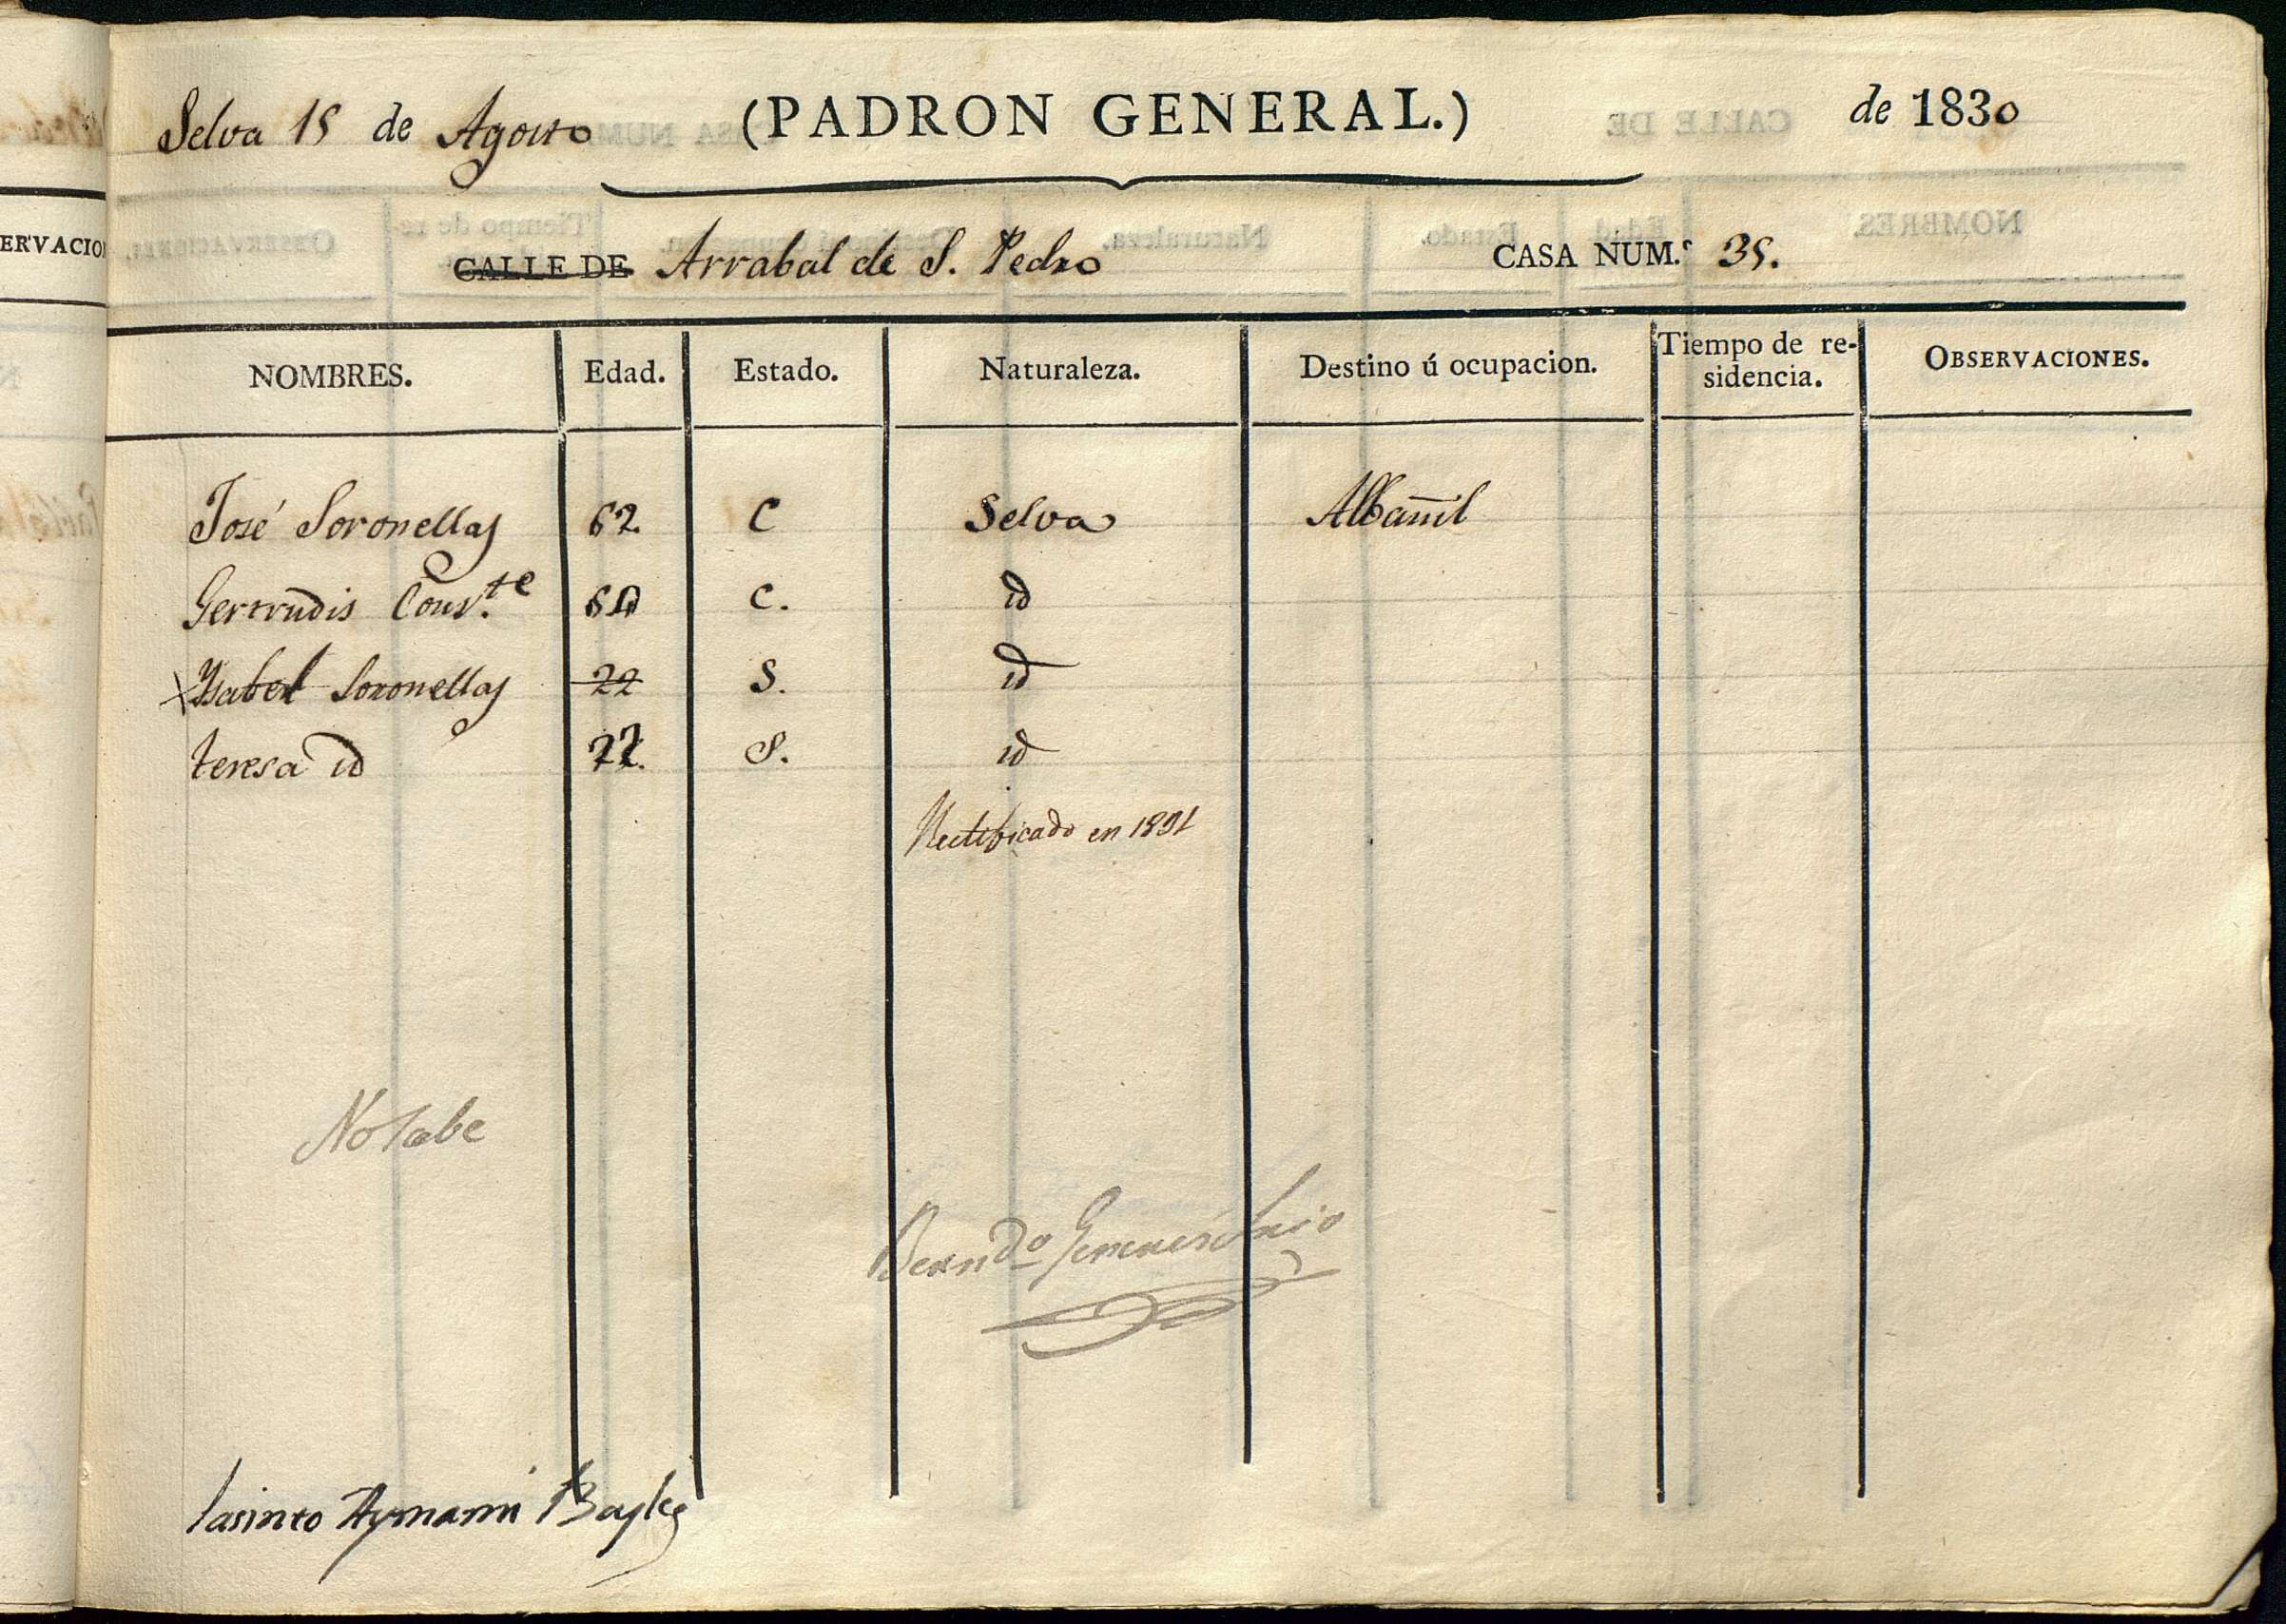 Selva 15 de Agosto (PADRON GENERAL.) de 1830
CALLE DE Arrabal de S. Pedro CASA NUM.º 35.
NOMBRES. Edad. Estado. Naturaleza. Destino ú ocupacion. Tiempo de re-
sidencia. OBSERVACIONES.
José Soronellas 62 C Selva Albañil
Gertrudis Cons.te C. id
Ysabel Soronellas 22 S. id
teresa id 22. S. id
Rectificado en 1831
No sabe
Jasinto Aymami Bayle